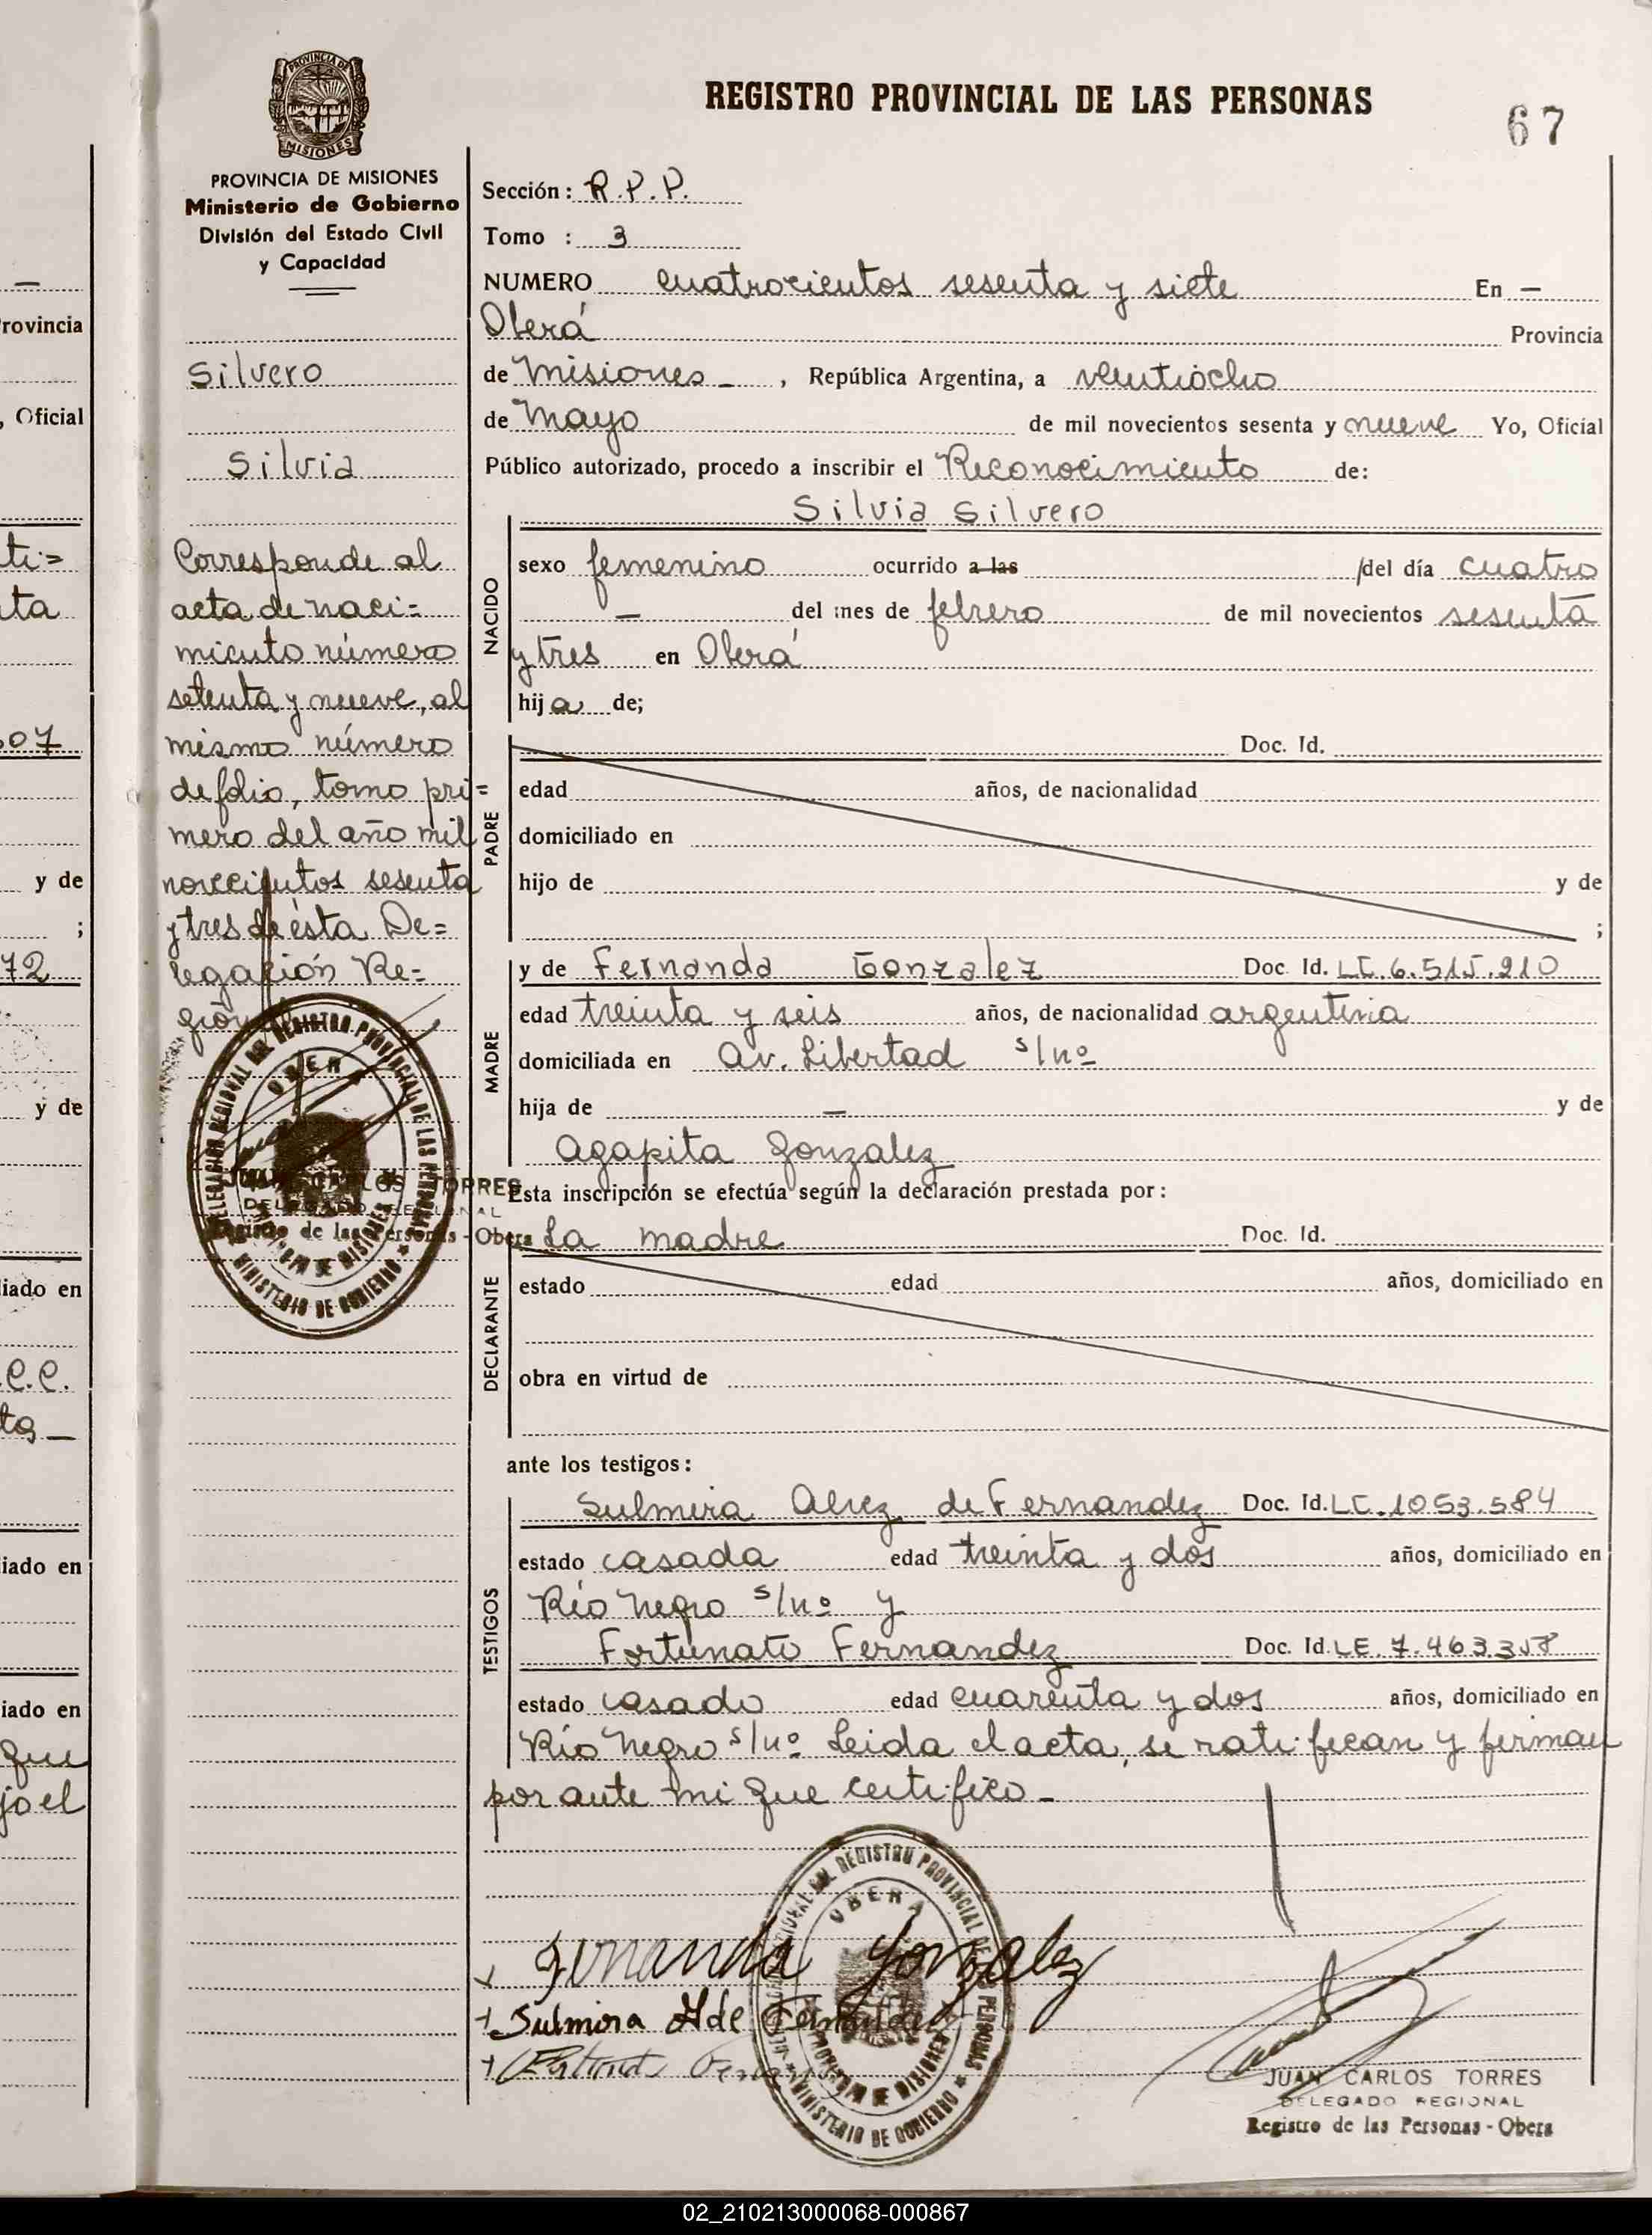 REGISTRO PROVINCIAL DE LAS PERSONAS
67
PROVINCIA DE MISIONES
Ministerio de Gobierno
División del Estado Civil
y Capacidad
Silvero
Silvia
Corresponde al
acta de naci=
miento número
setenta y nueve, al
mismo número
de folio, tomo pri=
mero del año mil
novecientos sesenta
y tres de ésta De=
legación Re=
Sección: R.P.P.
Tomo : 3
NUMERO cuatrocientos sesenta y siete En —
Oberá Provincia
de Misiones - , República Argentina, a veintiocho
de Mayo de mil novecientos sesenta y nueve Yo, Oficial
Público autorizado, procedo a inscribir el Reconocimiento de:
Silvia Silvero
NACIDO
sexo femenino ocurrido a las /del día cuatro
— del mes de febrero de mil novecientos sesenta
y tres en Oberá
hija de;
PADRE
Doc. Id.
edad años, de nacionalidad
domiciliado en
hijo de y de
;
MADRE
y de Fernanda Gonzalez Doc. Id. LC.6.515.210
edad treinta y seis años, de nacionalidad argentina
domiciliada en Av. Libertad s/nº
hija de — y de
Agapita Gonzalez
Esta inscripción se efectúa según la declaración prestada por:
DECLARANTE
La madre Doc. Id.
estado edad años, domiciliado en
obra en virtud de
ante los testigos:
TESTIGOS
Sulmira Alvez de Fernandez Doc. Id. LC.1053.584
estado casada edad treinta y dos años, domiciliado en
Río Negro s/nº y
Fortunato Fernandez Doc. Id. LE.7.463.358
estado casado edad cuarenta y dos años, domiciliado en
Río Negro s/nº Leida el acta, se ratifican y firman
por ante mi que certifico-
Fernanda Gonzalez
Sulmira A de Fernandez
DELEGACION REGIONAL DEL REGISTRO PROVINCIAL DE LAS PERSONAS
OBERA
PROVINCIA DE MISIONES
MINISTERIO DE GOBIERNO
JUAN CARLOS TORRES
DELEGADO REGIONAL
Registro de las Personas - Obera
02_210213000068-000867